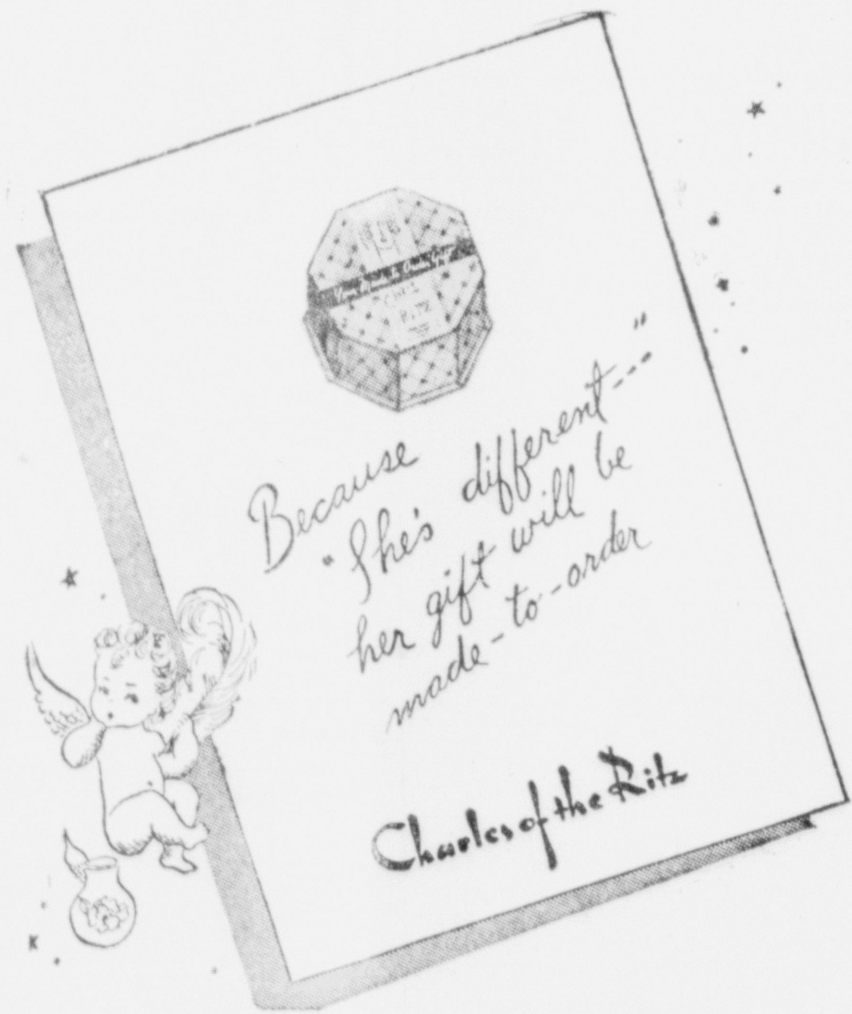 RITZ
Because
"She's different---"
her gift will be
made-to-order
Charles of the Ritz